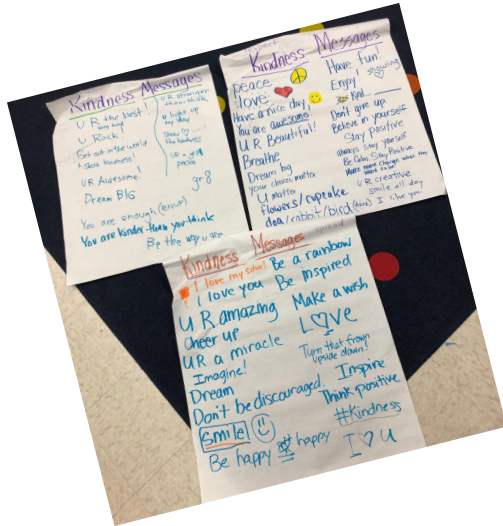 Kindness Messages
U R the best
U Rock!
Get out in the world
+ show kindness!
UR Awesome.
Dream BIG
You are enough
You are kinder than you think
Be the way u are
U R stronger
u light up
my day
Show
gr8
person
gr8
Kindness Messages
peace
love
Have a nice day,
You are awesome
U R Beautiful!
Breathe
Dream big
your choices matter
U matter
flowers/cupcake
dog/rabbit/bird
Have fun!
Enjoy
Kind...
Don't give up
Believe in yourself
Stay positive
always Stay yourself
Be Calm Stay Positive
UR creative
smile all day
I like you
Kindness Messages
I love my school
I love you
U R amazing
Cheer up
UR a miracle
Imagine!
Dream
Don't be discouraged.
Smile
Be happy happy
Be a rainbow
Be inspired
Make a wish
L♡VE
Turn that frown
upside down!
Inspire
Think positive
#Kindness
I ♡ U